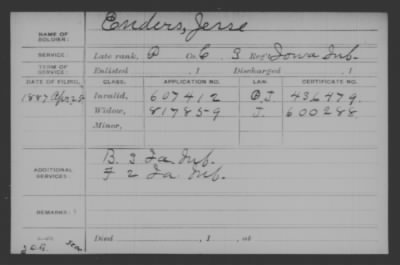 NAME OF SOLDIER: Enders, Jesse
SERVICE: Late rank, P Co. C, 3 Reg't Iowa Inf.
TERM OF SERVICE: Enlisted , 1 Discharged , 1
DATE OF FILING. CLASS. APPLICATION NO. LAW. CERTIFICATE NO.
1887 Apr. 28 Invalid, 607412 436479.
Widow, 817859 J. 600288
Minor,
ADDITIONAL SERVICES: B. 3 Ia. Inf.
F 2 Ia. Inf.
REMARKS:
Died , 1 , at